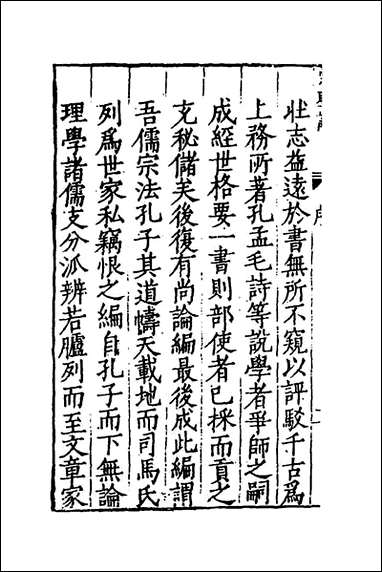 壯志益遠於書無所不窺以評駁千古爲
上務所著孔孟毛詩等說學者爭師之嗣
成經世格要一書則部使者已採而貢之
充秘儲矣後復有尚論編最後成此編謂
吾儒宗法孔子其道幬天載地而司馬氏
列爲世家私竊恨之編自孔子而下無論
理學諸儒支分派辨若臚列而至文章家
序